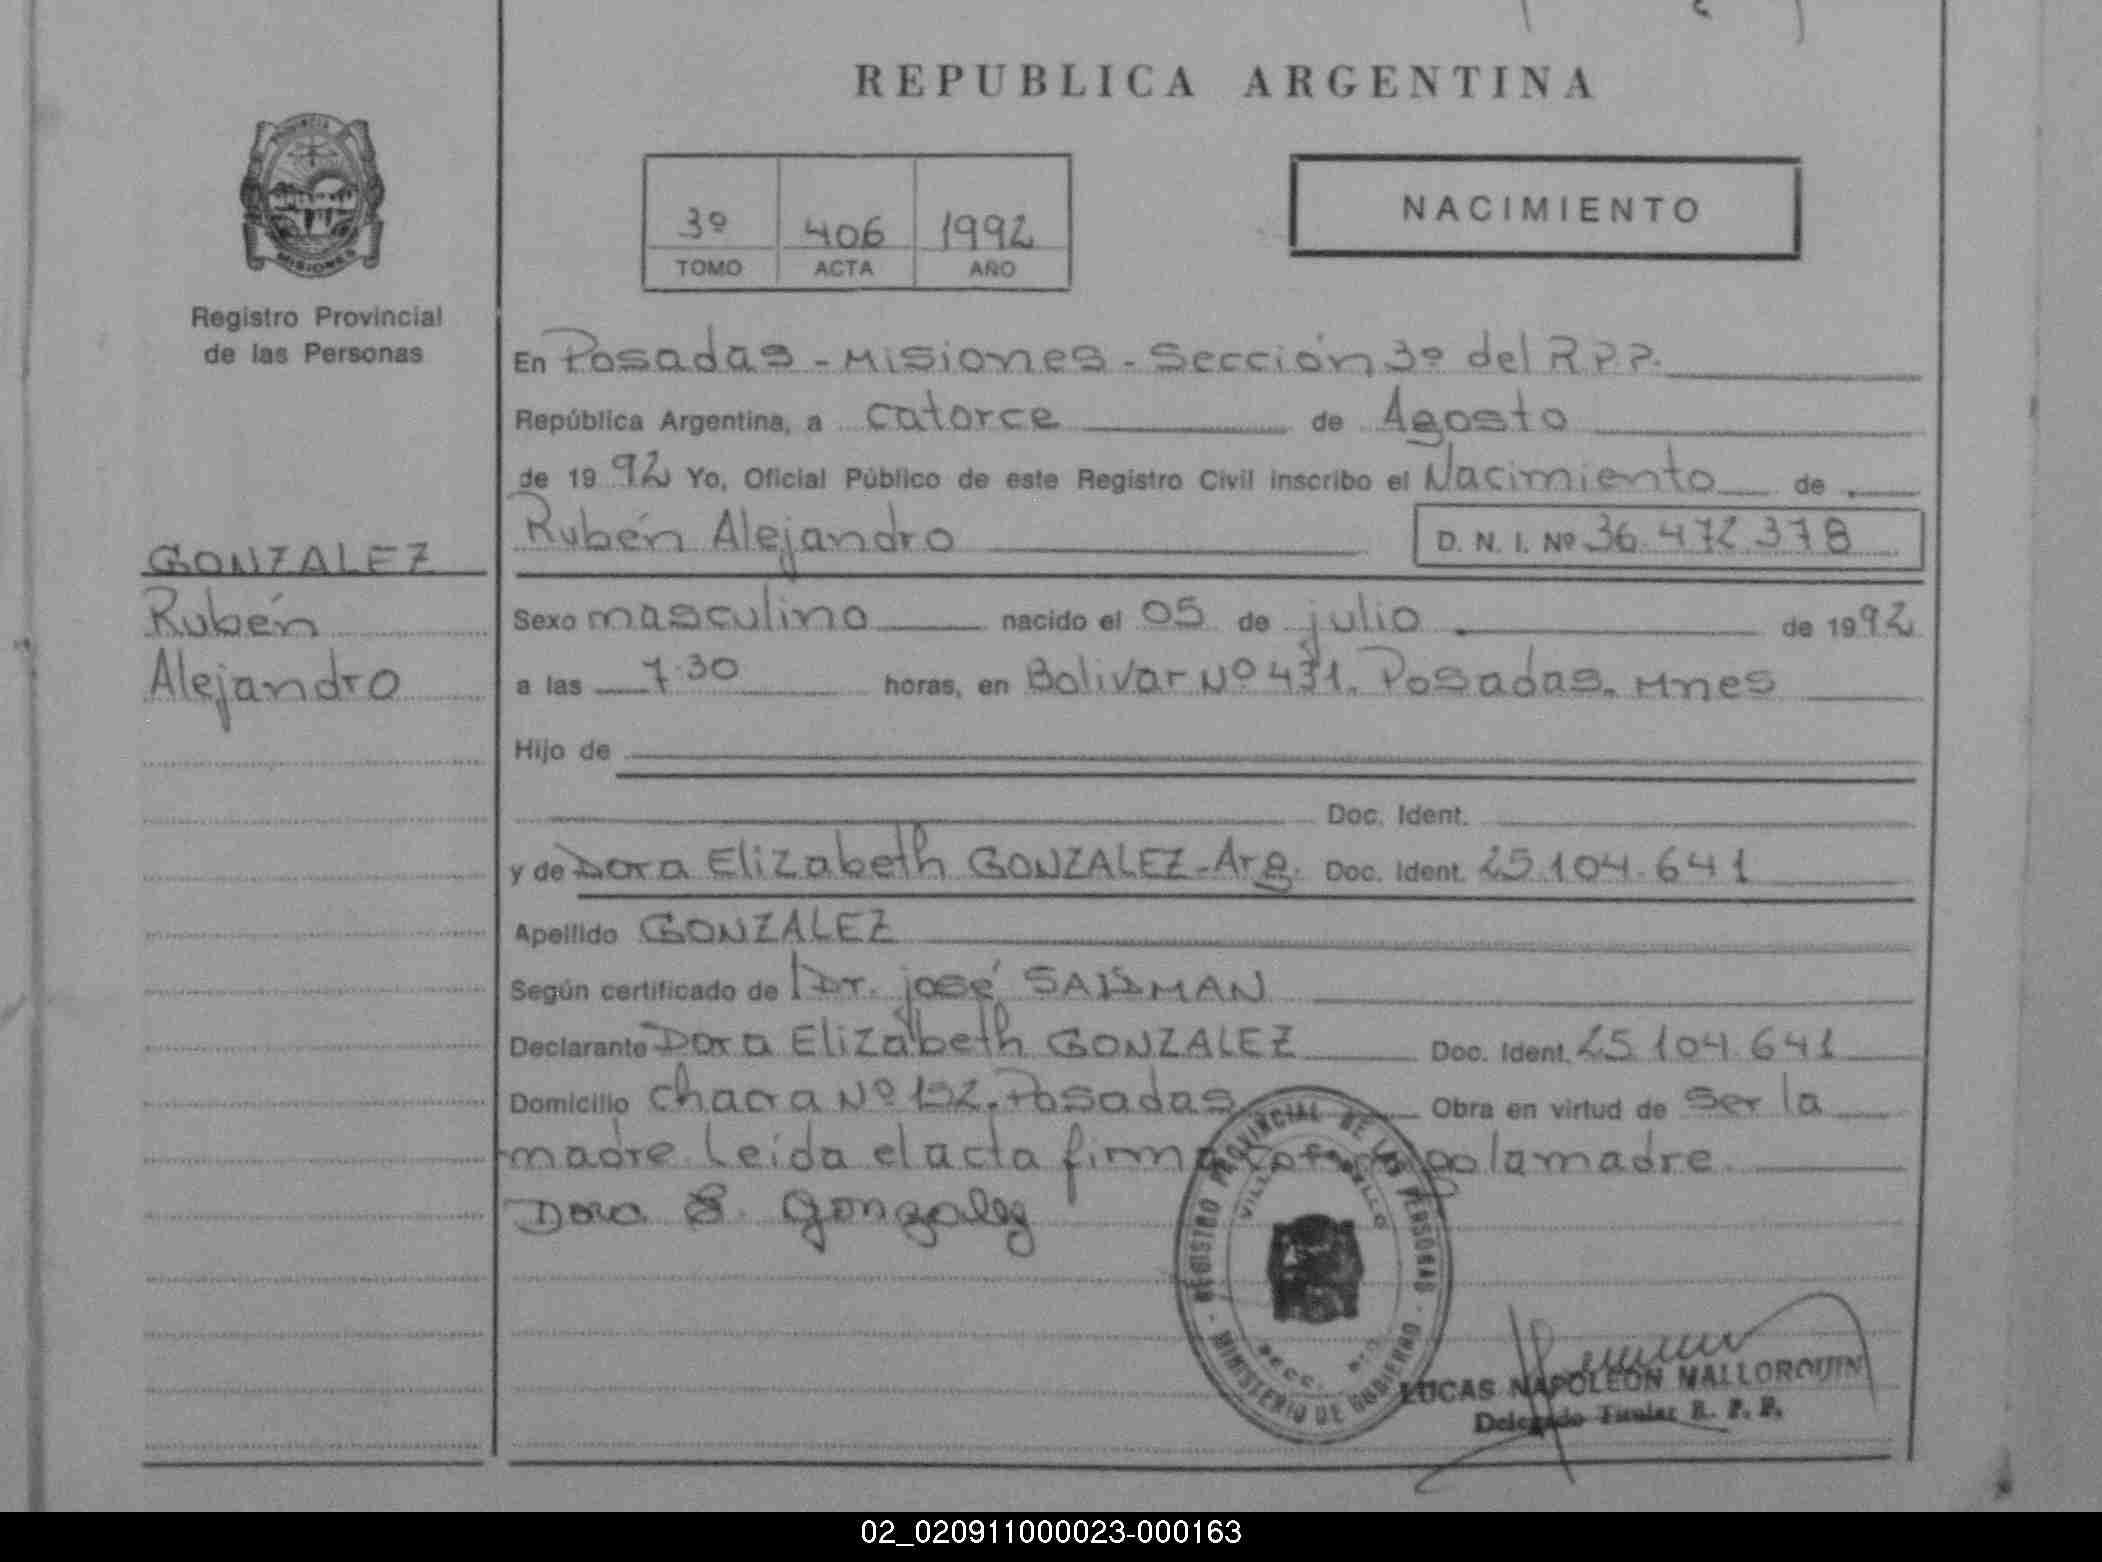 REPUBLICA ARGENTINA
PROVINCIA
MISIONES
Registro Provincial
de las Personas
3º 406 1992
TOMO ACTA AÑO
NACIMIENTO
En Posadas - Misiones - Sección 3º del R.P.P.
República Argentina, a catorce de Agosto
de 1992 Yo, Oficial Público de este Registro Civil inscribo el Nacimiento de
Rubén Alejandro D. N. I. Nº 36.472.378
GONZALEZ
Rubén
Alejandro
Sexo masculino nacido el 05 de julio de 1992
a las 7.30 horas, en Bolivar Nº 431. Posadas. Mnes
Hijo de
Doc. Ident.
y de Dora Elizabeth GONZALEZ - Arg. Doc. Ident. 25.104.641
Apellido GONZALEZ
Según certificado de Dr. josé
Declarante Dora Elizabeth GONZALEZ Doc. Ident. 25.104.641
Domicilio chacra Nº 152. Posadas Obra en virtud de ser la
madre. Leída el acta firma la madre.
Dora E. Gonzalez
REGISTRO PROVINCIAL DE LAS PERSONAS
MINISTERIO DE GOBIERNO
LUCAS NAPOLEON MALLORQUIN
Delegado Titular R. P. P.
02_020911000023-000163